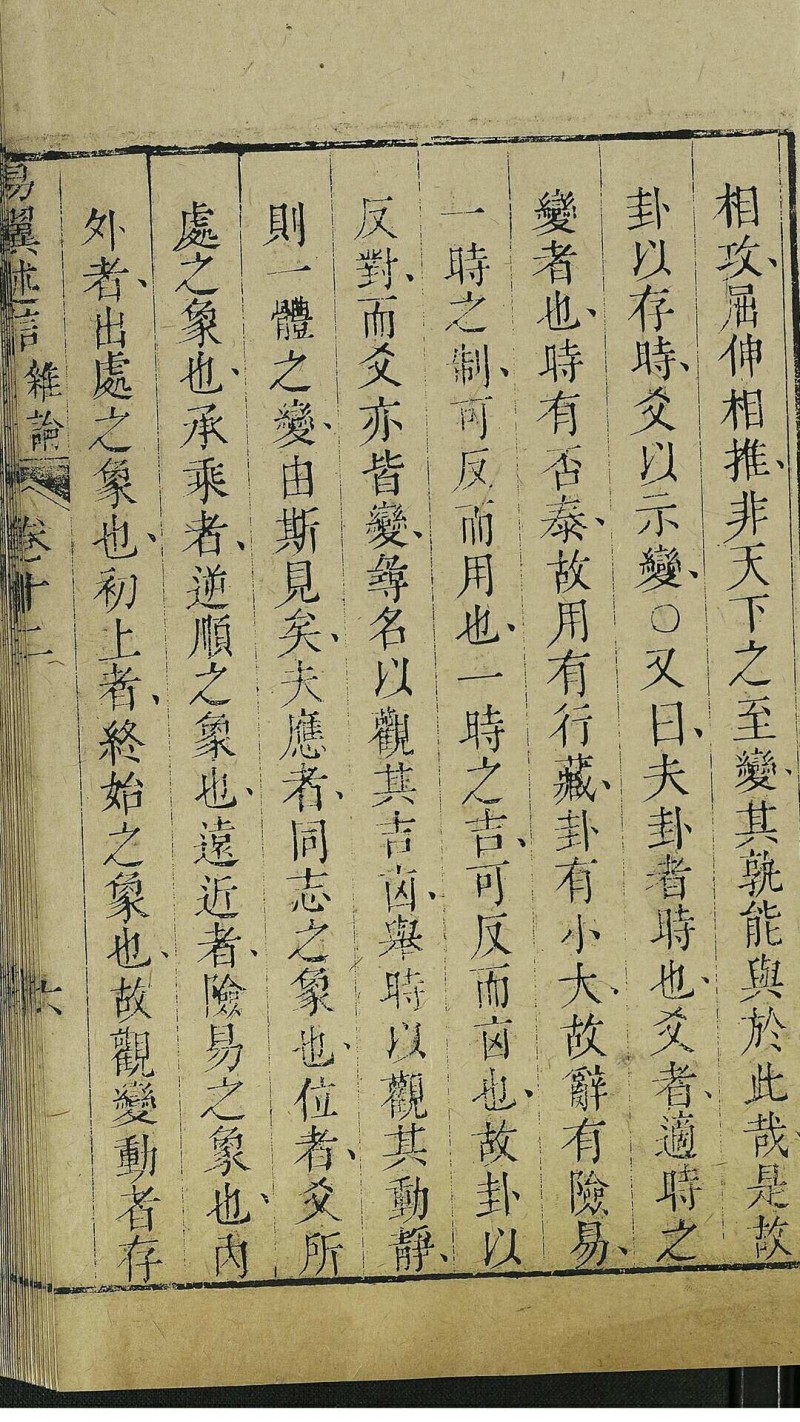 相攻、屈伸相推、非天下之至變、其孰能與於此哉是故
卦以存時、爻以示變、○又曰、夫卦者時也、爻者、適時之
變者也、時有否泰、故用有行藏、卦有小大、故辭有險易、
一時之制、可反而用也、一時之吉、可反而凶也、故卦以
反對、而爻亦皆變、尋名以觀其吉凶、舉時以觀其動靜、
則一體之變、由斯見矣、夫應者、同志之象也、位者、爻所
處之象也、承乘者、逆順之象也、遠近者、險易之象也、內
外者、出處之象也、初上者、終始之象也、故觀變動者存
易翼述信 雜論 卷十二 六